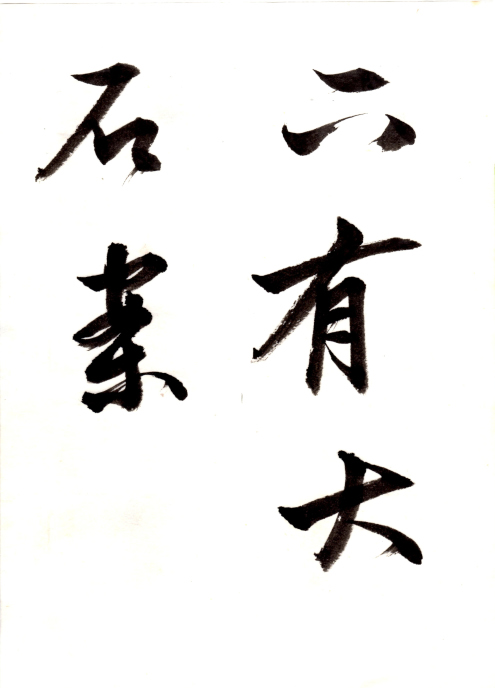 六有大
石案